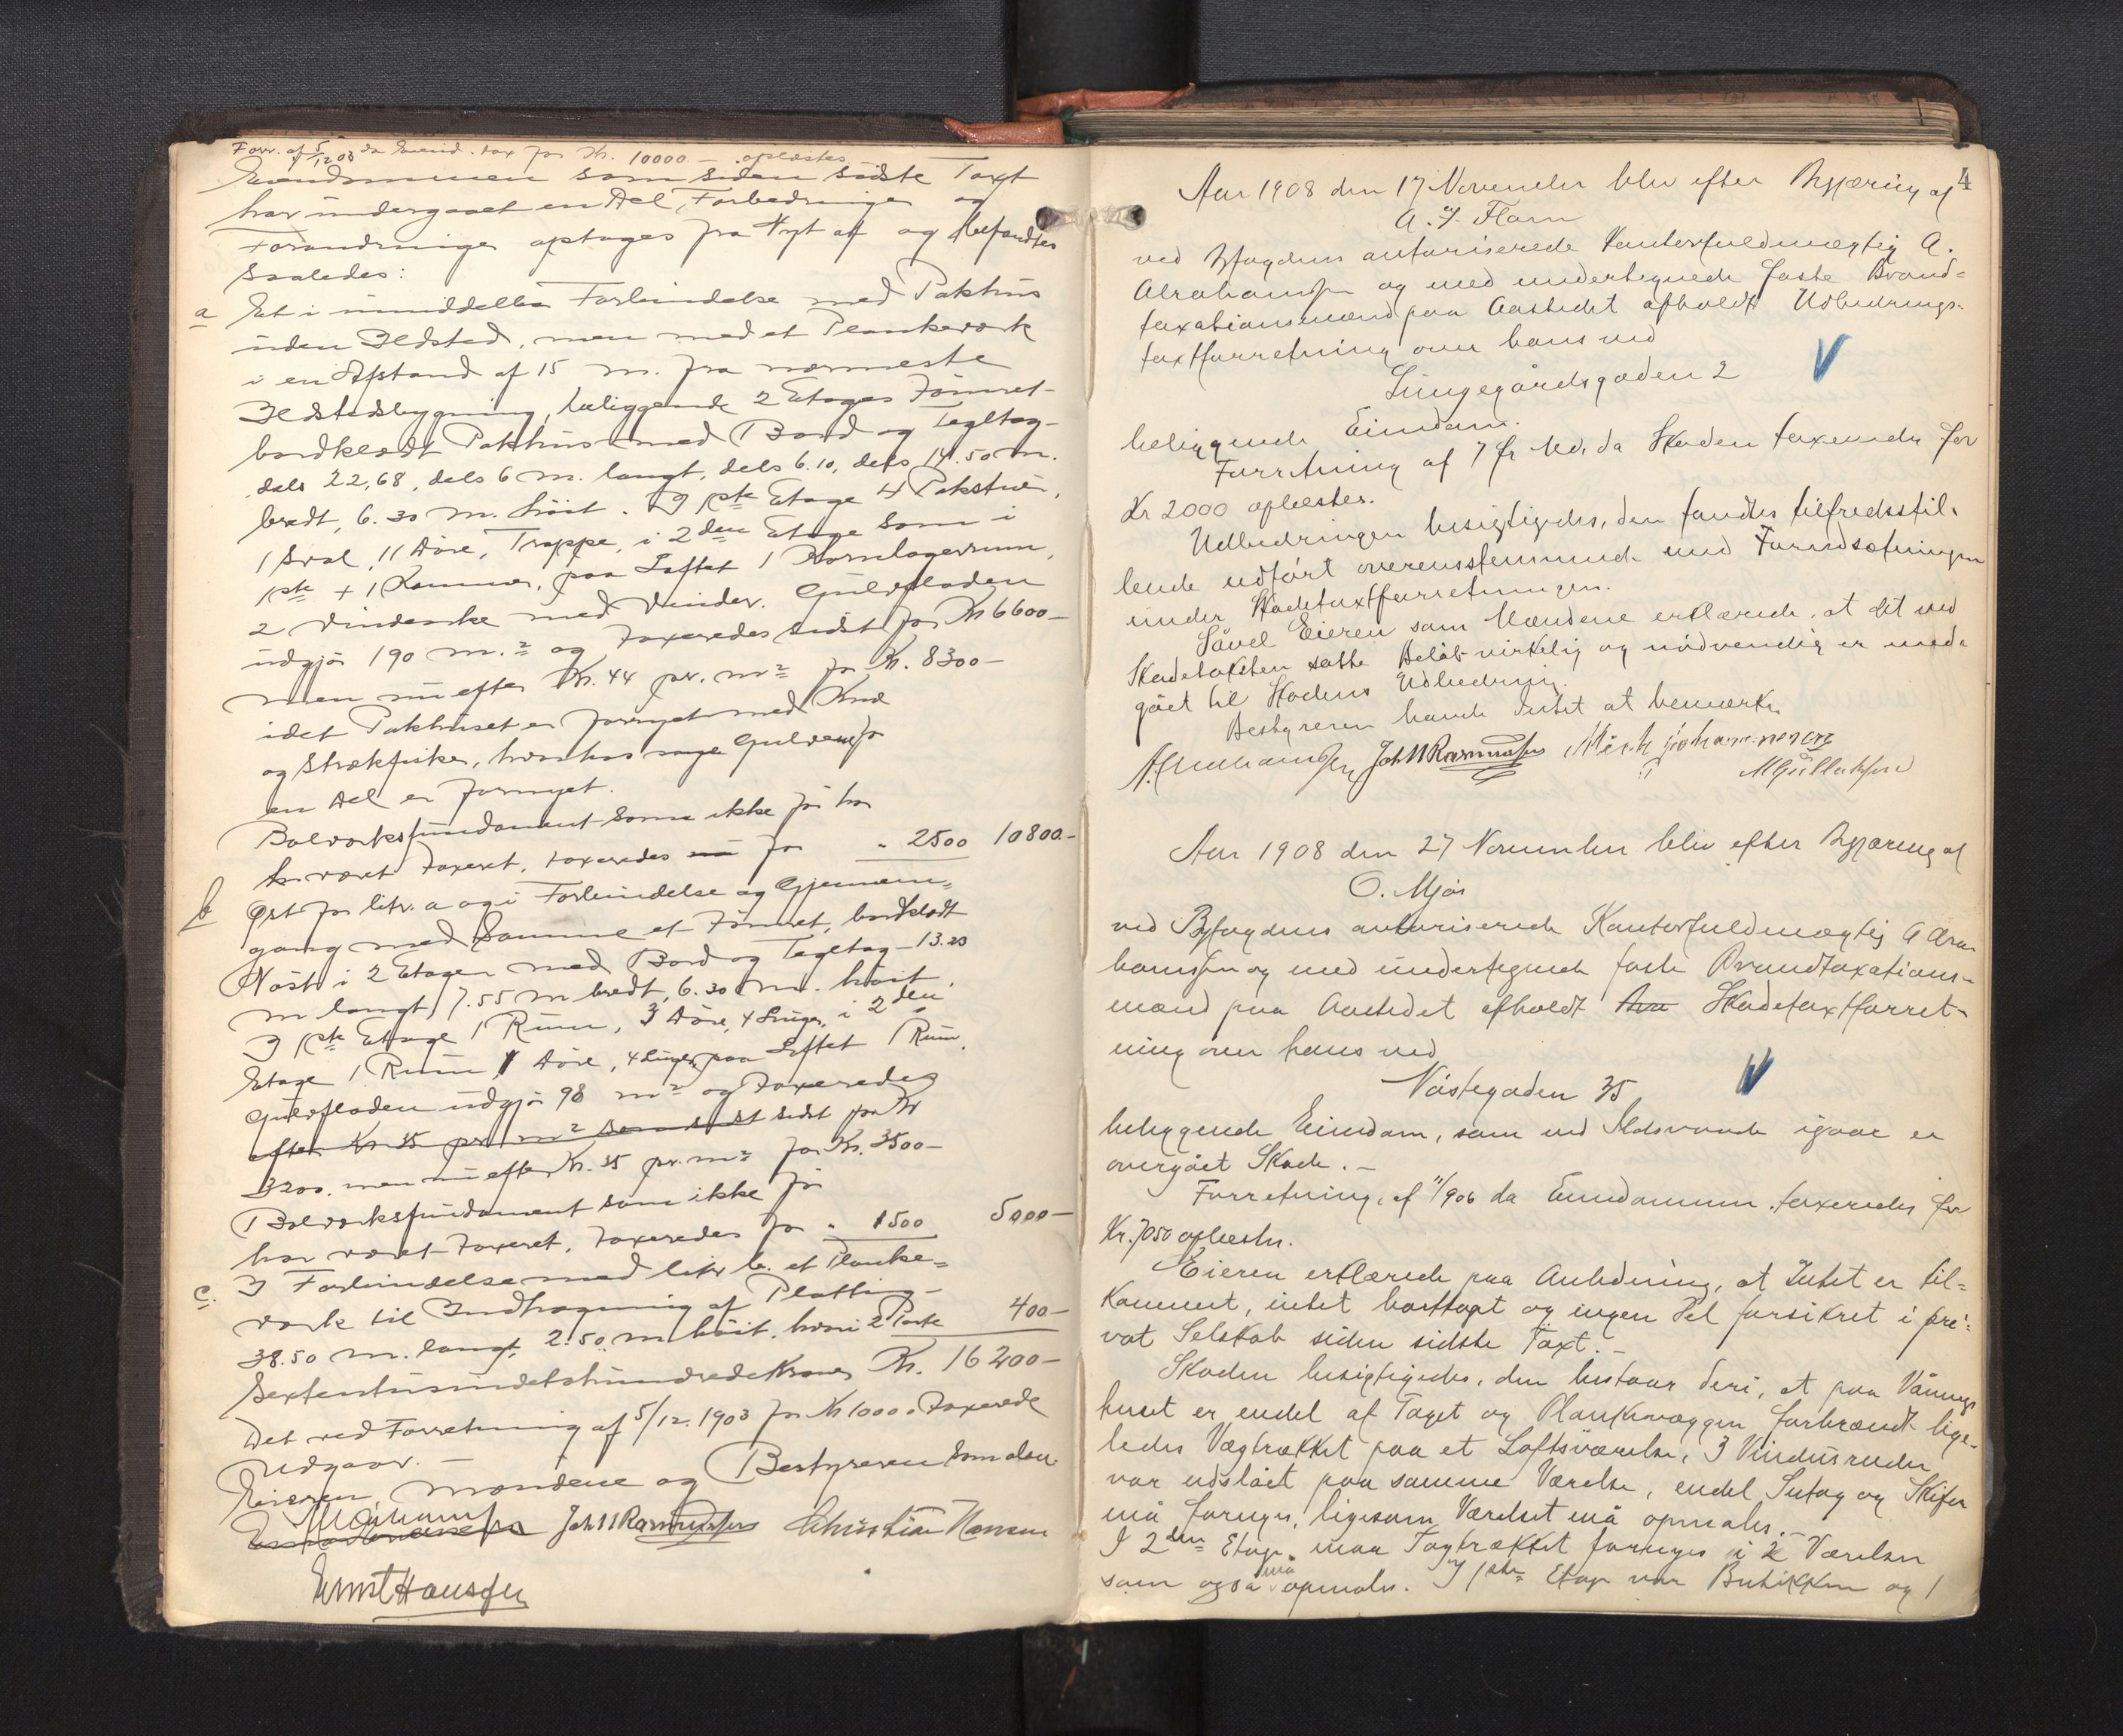 Forr. af 5/12 03 da Eiend. tax for Kr. 10000 — oplæstes
Eiendommen som siden sidste Taxt
har undergaaet en Del Forbedringer og
Forandringer optages paa Nyt af og befandtes
saaledes:
a Et i umiddelbar Forbindelse med Pakhus
uden Ildsted, men med et Plankeværk
i en Afstand af 15 m. fra nærmeste
Ildstedsbygning, beliggende 2 Etages tømret
bordklædt Pakhus med Bord og Tegltag
dels 22,68, dels 6 m. langt, dels 6.10, dels 14.50 m.
bredt, 6.30 m. høit. I 1ste Etage 4 Pakstuer,
1 Sval, 11 Døre, Trappe, i 2den Etage som i
1ste + 1 Kammer, paa Loftet 1 Kornlagerrum,
2 Vindearke med Vinder. Gulvfladen
udgjør 190 m.2 og taxeredes sidst for Kr 6600—
men nu efter Kr. 44 pr. m2 for Kr. 8300—
idet Pakhuset er fornyet med Knæ
og Strækfisker, hvorhos nye Gulve og
en Del er fornyet.
Bolværksfundament som ikke før har
været taxeret, taxeredes for „ 2500 10800—
b Øst for litr. a og i Forbindelse og Gjennem-
gang med samme et tømret, bordklædt
Nøst i 2 Etager med Bord og Tegltag — 13.20
m langt, 7.55 m bredt, 6.30 m. høit.
I 1ste Etage 1 Rum, 3 Døre, 4 Luger, i 2den
Etage 1 Rum, 1 Døre, 4 Luger, paa Loftet 1 Rum.
Gulvfladen udgjør 98 m2 og taxeredes
efter Kr 35 pr m2 som sidst sidst for Kr
3200. men nu efter Kr. 35 pr. m2 for Kr. 3500—
Bolværksfundament som ikke før
har været taxeret, taxeredes for „ 1500 5000—
c. I Forbindelse med litr b. et Planke-
værk til Indhegning af Platting
38.50 m. langt, 2.50 m høit, hvori 2 Porte 400—
Sextentusindetohundrede Kroner Kr. 16200—
Det ved Forretning af 5/12. 1903 for Kr 10000 taxerede
Udgaar. —
Eieren, Mændene og Bestyreren som oben.
Joh N Rasmussen Christian Hansen
Ernst Hansen
4
Aar 1908 den 17 November blev efter Begjæring af
A. J. Flam
ved Byfogdens autoriserede Kontorfuldmægtig A.
Abrahamsen og med undertegnede faste Brand-
taxationsmænd paa Aastedet afholdt Udbedrings-
taxtforretning over hans ved
Lungegårdsgaden 2
beliggende Eiendom.
Forretning af 7 f. Md. da Skaden taxeredes for
Kr 2000 oplæstes.
Udbedringen besigtigedes, den fandtes tilfredsstil-
lende udført overensstemmende med Forudsætningen
under Skadetaxtforretningen.
Såvel Eieren som Mændene erklærede, at det ved
Skadetaksten satte Beløb virkelig og nødvendig er med-
gået til Skadens Udbedring.
Bestyreren havde Intet at bemærke
A. Abrahamsen Joh N Rasmussen Mich Johannesen
M Gullaksen
Aar 1908 den 27 November blev efter Begjæring af
O. Mjøs
ved Byfogdens autoriserede Kontorfuldmægtig A Abra
hamsen og med undertegnede faste Brandtaxations-
mænd paa Aastedet afholdt Skadetaxtforret-
ning over hans ved
Nøstegaden 35
beliggende Eiendom, som ved Ildsvaade igaar er
overgået Skade. —
Forretning af 11/906 da Eiendommen taxeredes for
Kr. 7050 oplæstes.
Eieren erklærede paa Anledning, at Intet er til-
kommet, intet borttaget og ingen Del forsikret i pri-
vat Selskab siden sidste Taxt. —
Skaden besigtigedes, den bestaar deri, at paa Vånings
huset er endel af Taget og Plankevæggen forbrændt lige-
ledes Vægtrækket paa et Loftsværelse, 3 Vindusruder
var udslået paa samme Værelse, endel Sutag og Skifer
må fornyes, ligesom Værelset må opmales. —
I 2den Etage maa Tagtrækket fornyes i 2 Værelser
som også må opmales. I 1ste Etage var Butikken og 1